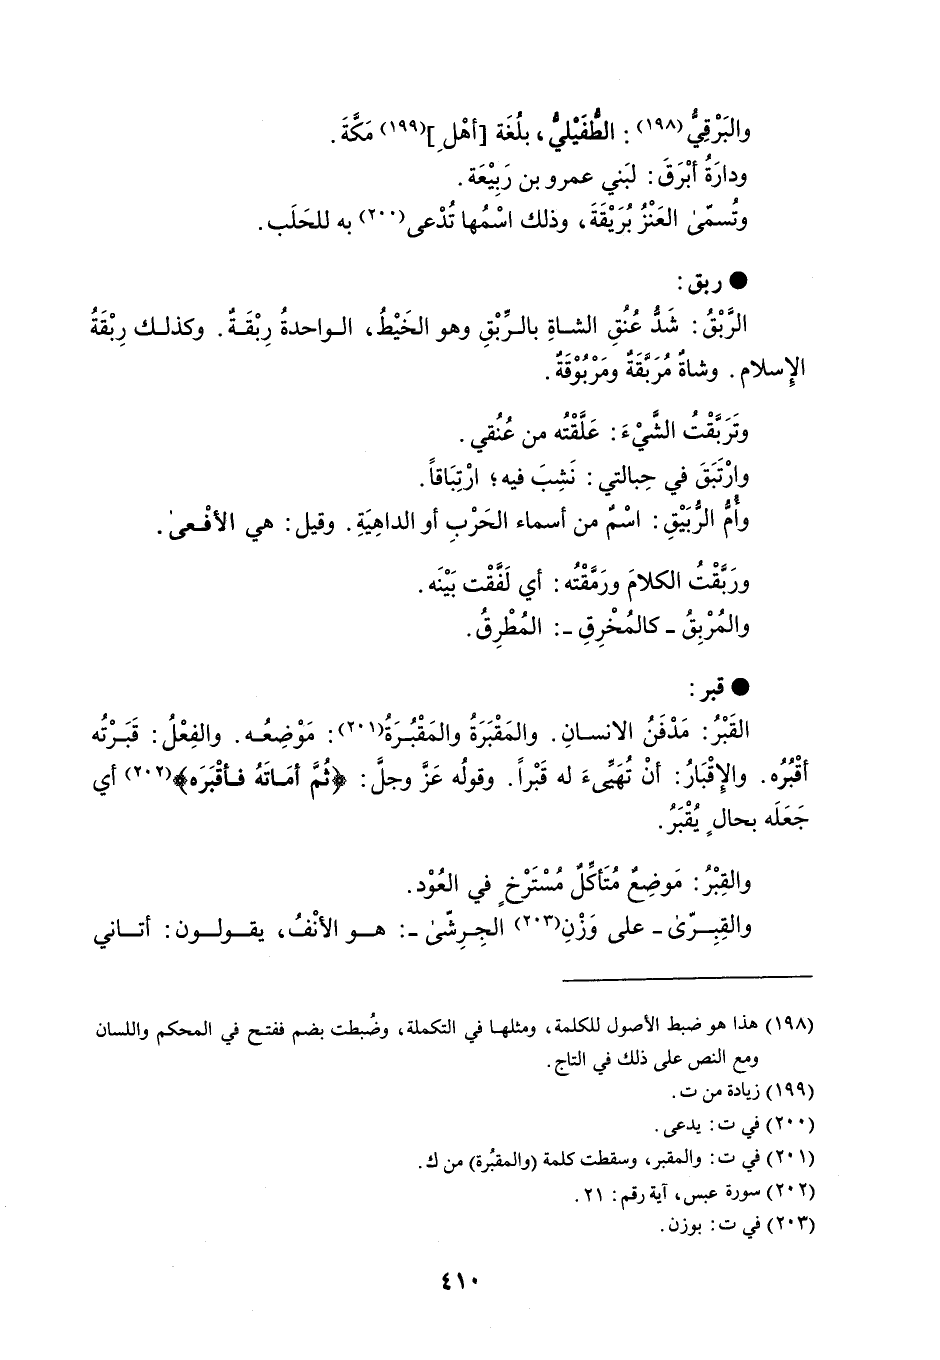 والبَرْقِيُّ(١٩٨): الطُّفَيْلِيُّ، بلُغَة [أهْلِ](١٩٩) مَكَّةَ.
ودارَةُ أبْرَقَ: لبَني عمرو بن رَبِيْعَة.
وتُسمّىٰ العَنْزُ بُرَيْقَةَ، وذلك اسْمُها تُدْعى(٢٠٠) به للحَلَب.
● ربق:
الرَّبْقُ: شَدُّ عُنُقِ الشاةِ بالرِّبْقِ وهو الخَيْطُ، الواحدةُ رِبْقَةٌ. وكذلك رِبْقَةُ
الإسلام. وشاةٌ مُرَبَّقَةٌ ومَرْبُوْقَةٌ.
وتَرَبَّقْتُ الشَّيْءَ: عَلَّقْتُه من عُنُقي.
وارْتَبَقَ في حِبالتي: نَشِبَ فيه؛ ارْتِبَاقاً.
وأُمُّ الرُّبَيْقِ: اسْمٌ من أسماء الحَرْبِ أو الداهِيَةِ. وقيل: هي الأفْعىٰ.
ورَبَّقْتُ الكلامَ ورَمَّقْتُه: أي لَفَّقْت بَيْنَه.
والمُرْبِقُ ـ كالمُخْرِقِ ـ: المُطْرِقُ.
● قبر:
القَبْرُ: مَدْفَنُ الانسانِ. والمَقْبَرَةُ والمَقْبُرَةُ(٢٠١): مَوْضِعُه. والفِعْلُ: قَبَرْتُه
أقْبُرُه. والإقْبَارُ: أنْ تُهَيِّىءَ له قَبْراً. وقولُه عَزَّ وجلَّ: ﴿ثُمَّ أمَاتَهُ فأقْبَرَه﴾(٢٠٢) أي
جَعَلَه بحالٍ يُقْبَرُ.
والقِبْرُ: مَوضِعٌ مُتَأكِّلٌ مُسْتَرْخٍ في العُوْد.
والقِبِرّىٰ ـ على وَزْنِ(٢٠٣) الجِرِشّىٰ ـ: هو الأنْفُ، يقولون: أتاني
(١٩٨) هذا هو ضبط الأصول للكلمة، ومثلها في التكملة، وضُبطت بضم ففتح في المحكم واللسان
ومع النص على ذلك في التاج.
(١٩٩) زيادة من ت.
(٢٠٠) في ت: يدعى.
(٢٠١) في ت: والمقبر، وسقطت كلمة (والمقبُرة) من ك.
(٢٠٢) سورة عبس، آية رقم: ٢١.
(٢٠٣) في ت: بوزن.
٤١٠